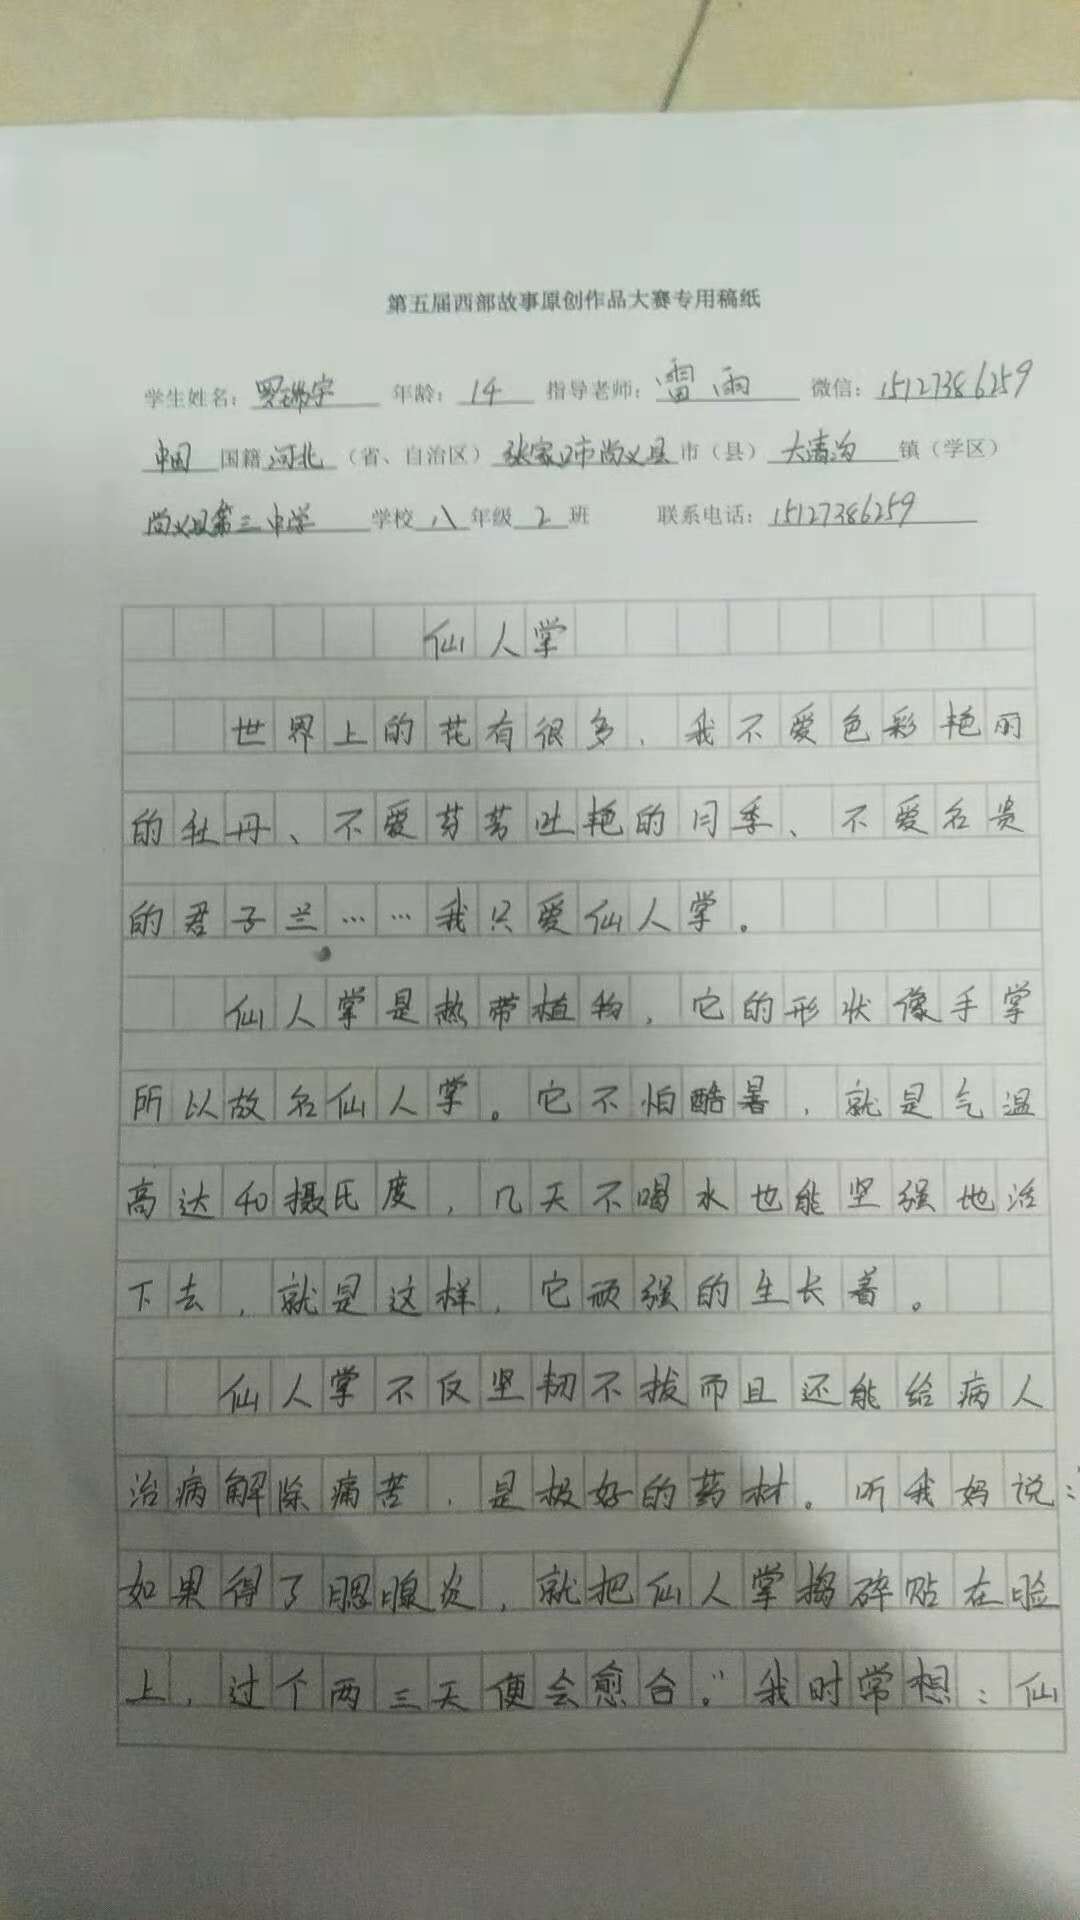 第五届西部故事原创作品大赛专用稿纸
学生姓名：罗瑞宇 年龄：14 指导老师：雷雨 微信：15127386259
中国国籍河北（省、自治区）张家口市尚义县市（县）大清沟镇（学区）
尚义县第三中学学校八年级2班 联系电话：15127386259
仙人掌
世界上的花有很多，我不爱色彩艳丽
的牡丹、不爱芬芳吐艳的月季、不爱名贵
的君子兰……我只爱仙人掌。
仙人掌是热带植物，它的形状像手掌
所以故名仙人掌。它不怕酷暑，就是气温
高达40摄氏度，几天不喝水也能坚强地活
下去，就是这样，它顽强的生长着。
仙人掌不仅坚韧不拔而且还能给病人
治病解除痛苦，是极好的药材。听我妈说：
如果得了腮腺炎，就把仙人掌捣碎贴在脸
上，过个两三天便会愈合。”我时常想：仙